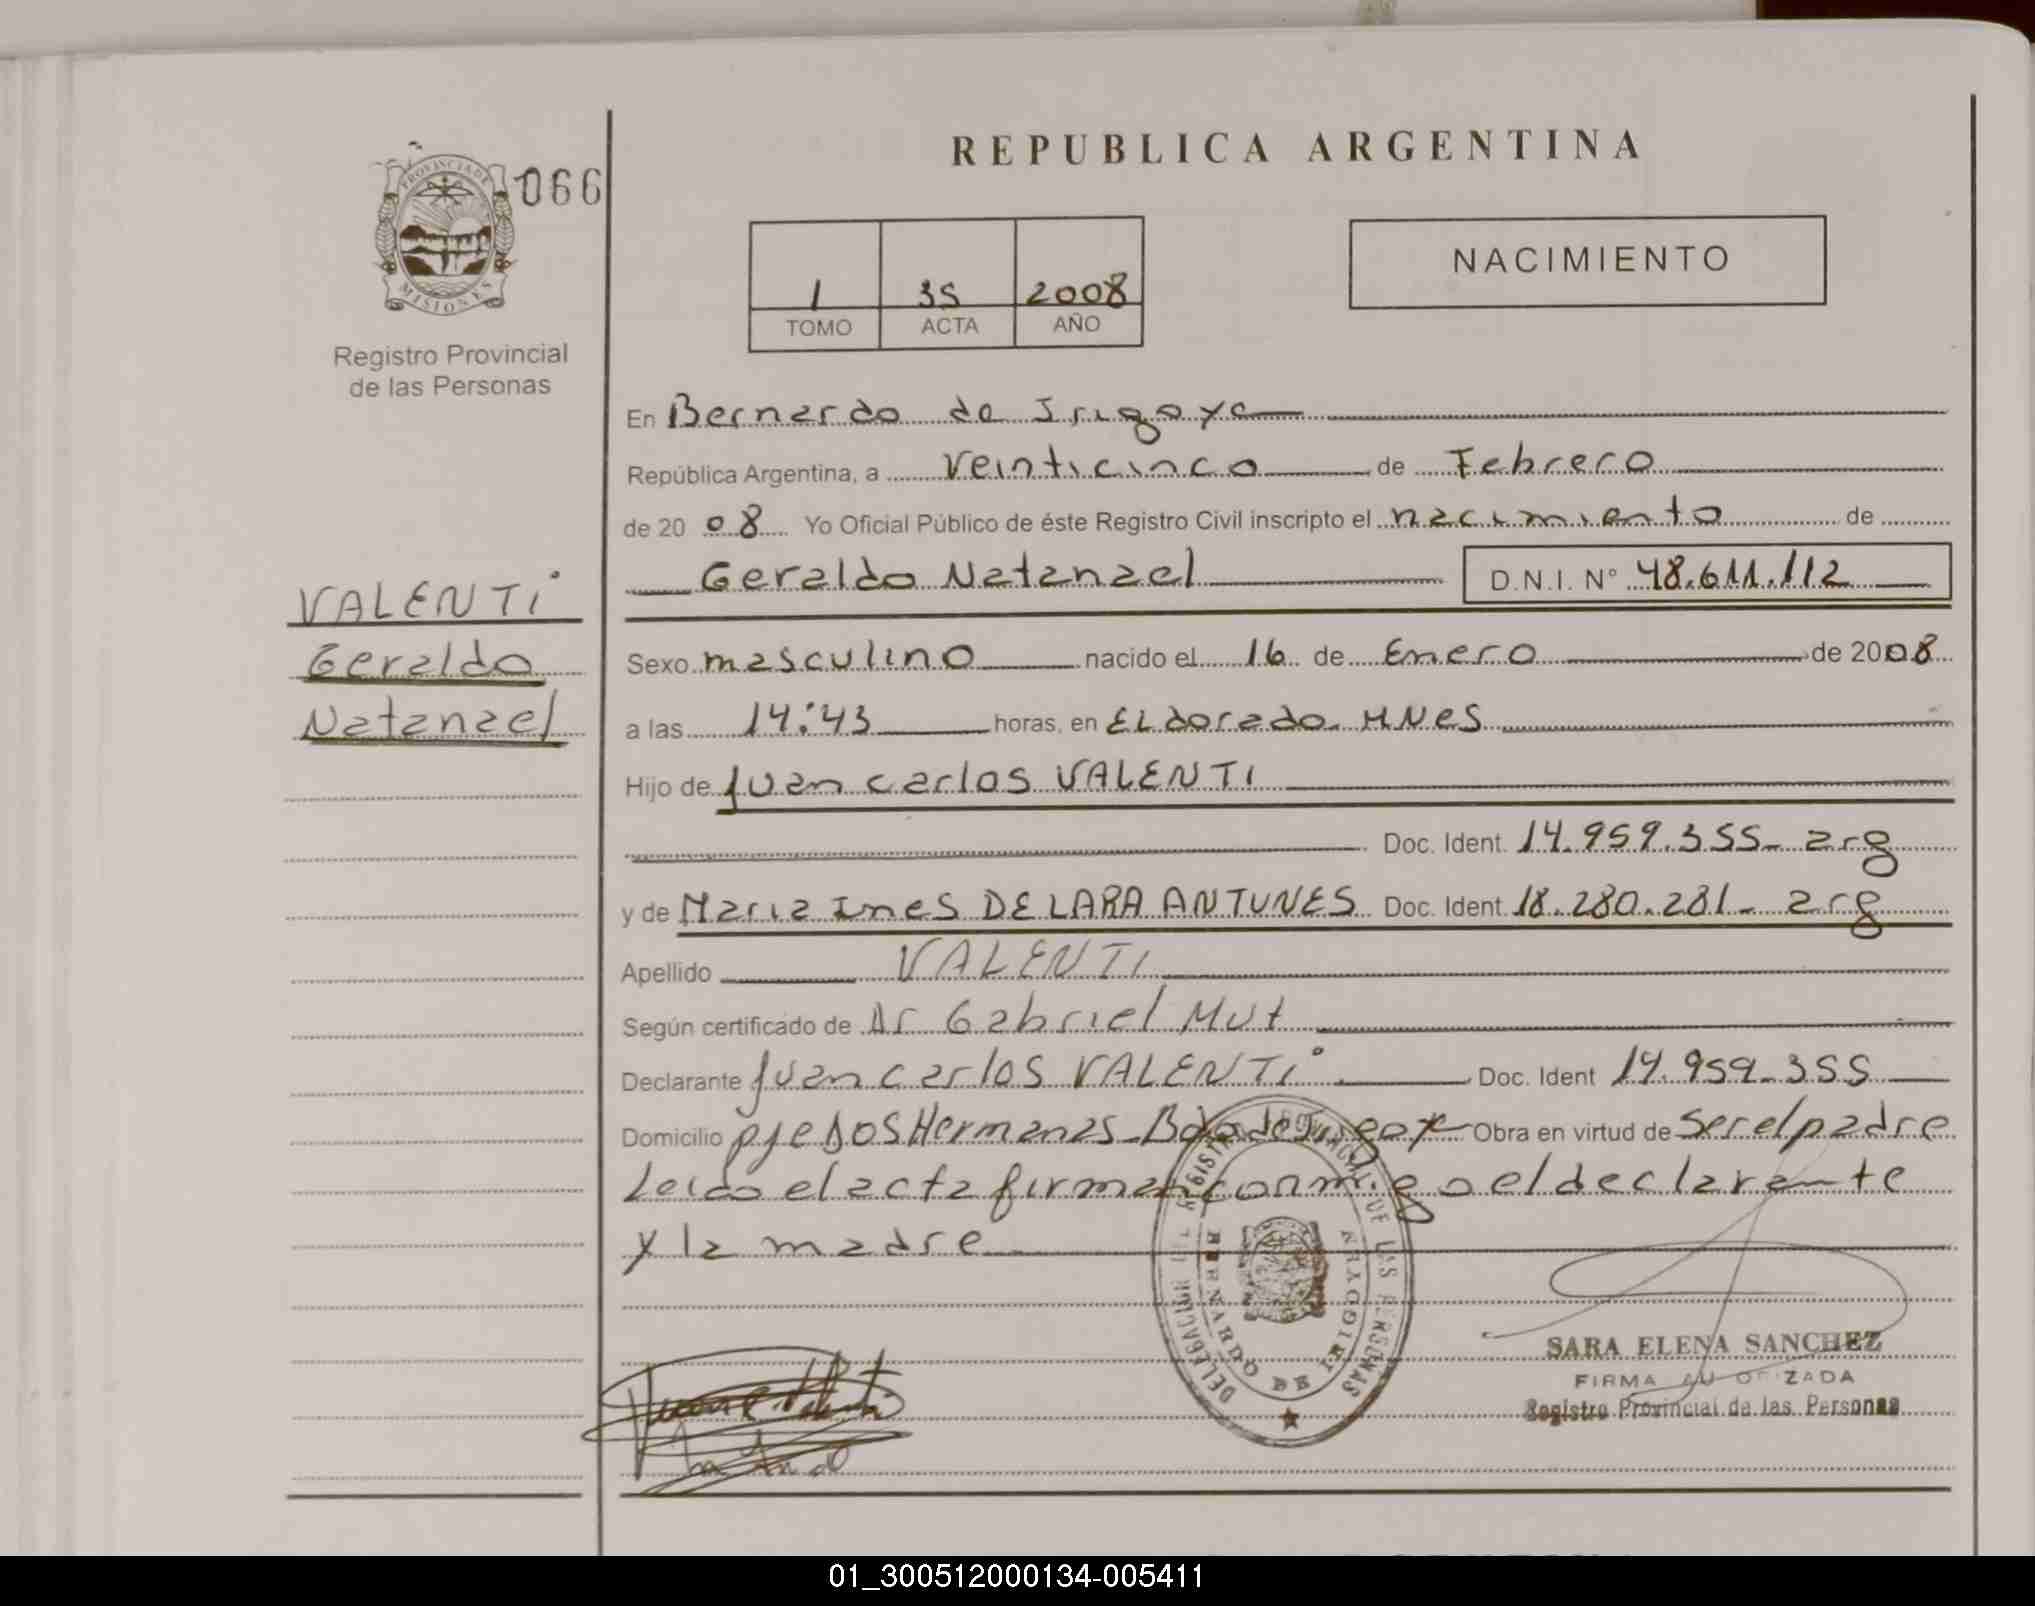 REPUBLICA ARGENTINA
PROVINCIA DE
MISIONES
066
Registro Provincial
de las Personas
1 35 2008
TOMO ACTA AÑO
NACIMIENTO
En Bernardo de Irigoye
República Argentina, a Veinticinco de Febrero
de 2008 Yo Oficial Público de éste Registro Civil inscripto el nacimiento de
Geraldo Natanael D.N.I. N° 48.611.112
VALENTI
Geraldo
Natanael
Sexo masculino nacido el 16 de Enero de 2008
a las 14:43 horas, en ELdorado. MNES
Hijo de Juan carlos VALENTI
Doc. Ident. 14.959.355- arg
y de Maria Ines DE LARA ANTUNES Doc. Ident. 18.280.281- arg
Apellido VALENTI
Según certificado de Dr Gabriel Mut
Declarante Juan carlos VALENTI Doc. Ident 14.959-355
Domicilio pje Dos Hermanas - Bdo de Irigoy Obra en virtud de ser el padre
Leido el acta firman conmigo el declarante
y la madre
DELEGACION DEL REGISTRO PROVINCIAL DE LAS PERSONAS
BERNARDO DE IRIGOYEN
SARA ELENA SANCHEZ
FIRMA AUTORIZADA
Registro Provincial de las Personas
01_300512000134-005411